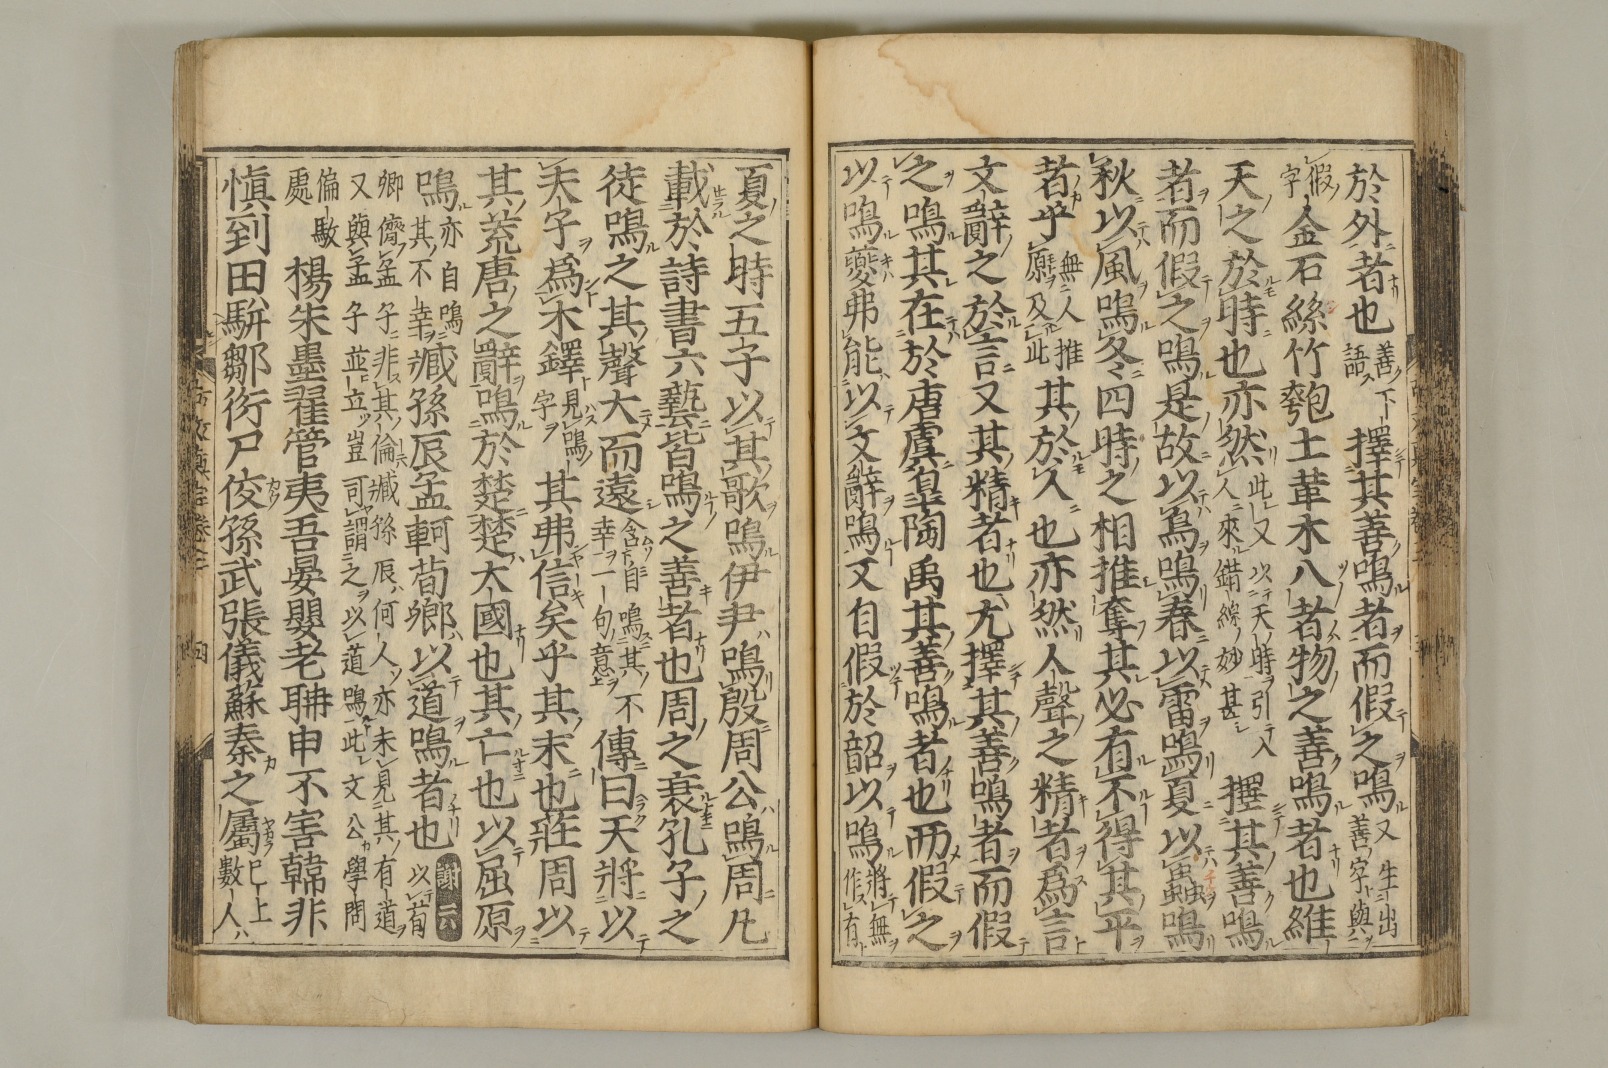 於外者也善下語擇其善鳴者而假之鳴又生出善字與
假字金石絲竹匏土革木八者物之善鳴者也維
天之於時也亦然此又以天時引入人來錯綜妙甚擇其善鳴
者而假之鳴是故以鳥鳴春以雷鳴夏以蟲鳴
秋以風鳴冬四時之相推奪其必有不得其平
者乎無人推原及此其於人也亦然人聲之精者為言
文辭之於言又其精者也尤擇其善鳴者而假
之鳴其在於唐虞皐陶禹其善鳴者也而假之
以鳴夔弗能以文辭鳴又自假於韶以鳴將無作有
夏之時五子以其歌鳴伊尹鳴殷周公鳴周凡
載於詩書六藝皆鳴之善者也周之衰孔子之
徒鳴之其聲大而遠含自鳴其不幸一句意傳曰天將以
夫子爲木鐸見鳴字其弗信矣乎其末也莊周以
其荒唐之辭鳴於楚楚大國也其亡也以屈原
鳴亦自鳴其不幸臧孫辰孟軻荀卿以道鳴者也以荀
卿儕孟子非其倫臧孫辰何人亦未見其有道
又與孟子並立豈可謂之以道鳴此文公學問
偏駁處楊朱墨翟管夷吾晏嬰老聃申不害韓非
愼到田駢鄒衍尸佼孫武張儀蘇秦之屬已上數人
古文眞宝卷之三 四
謝云